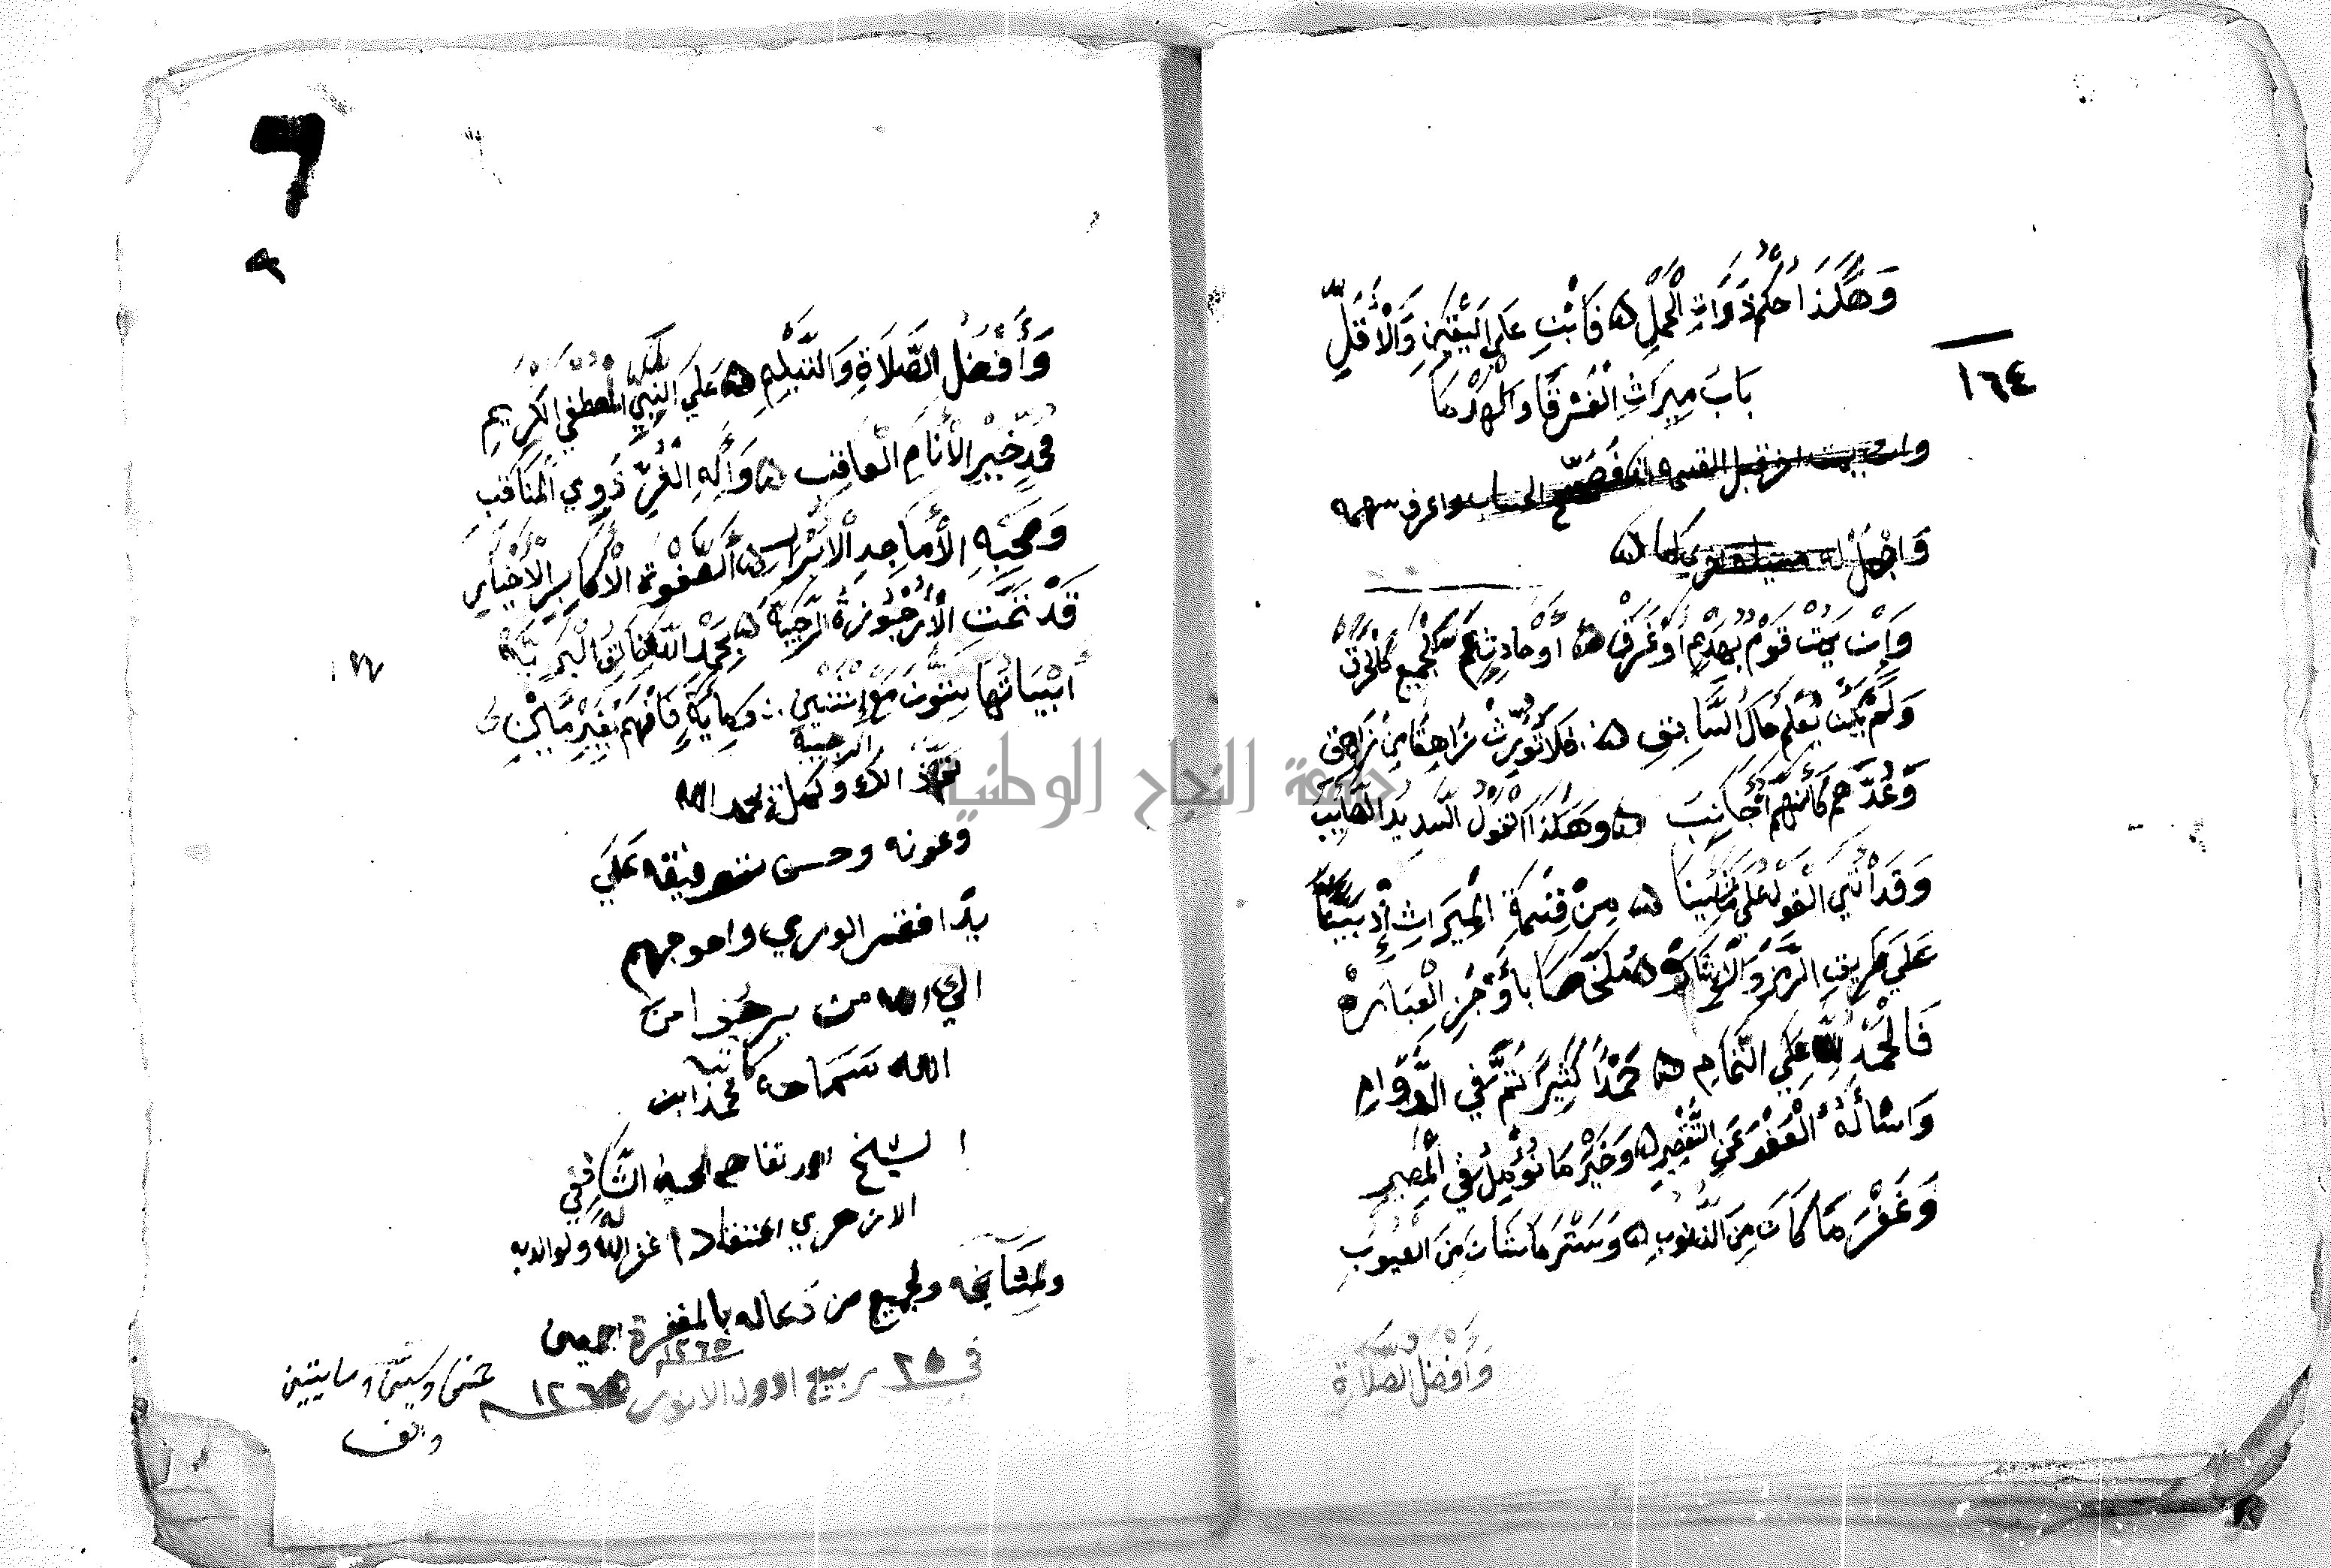 وَهَكَذَا حُكْمُ ذَوَاتِ الْحَمْلِ ه فَابْنِ عَلَى الْيَقِينِ وَالْأَقَلِّ
١٦٤
بَابُ مِيرَاثِ الْغَرْقَا وَالْهَدْمَا
وَإِنْ يَمُتْ قَوْمٌ بِهَدْمٍ أَوْ غَرَقْ ه أَوْ حَادِثٍ عَمَّ الْجَمِيعَ كَالْحَرَقْ
وَلَمْ يَكُنْ يُعْلَمُ حَالُ السَّابِقِ ه فَلَا تُوَرِّثْ زَاهِقًا مِنْ زَاهِقِ
وَعُدَّهُمْ كَأَنَّهُمْ أَجَانِبُ ه وَهَكَذَا الْقَوْلُ السَّدِيدُ الصَّايِبُ
وَقَدْ أَتَى الْقَوْلُ عَلَى مَا شِينَا ه مِنْ قِسْمَةِ الْمِيرَاثِ إِذْ بَيَّنَّا
عَلَى طَرِيقِ الرَّمْزِ وَالْإِشَارَهْ ه مُلَخَّصًا بِأَوْجَزِ الْعِبَارَهْ
فَالْحَمْدُ لِلَّهِ عَلَى التَّمَامِ ه حَمْدًا كَثِيرًا تَمَّ فِي الدَّوَامِ
وَاسْأَلُهُ الْعَفْوَ عَنِ التَّقْصِيرِ ه وَخَيْرَ مَا نُؤَمِّلُ فِي الْمَصِيرِ
وَغَفْرَ مَا كَانَ مِنَ الذُّنُوبِ ه وَسَتْرَ مَا شَانَ مِنَ الْعُيُوبِ
وَأَفْضَلُ الصَّلَاةِ
٦
٩
وَأَفْضَلُ الصَّلَاةِ وَالتَّسْلِيمِ ه عَلَى النَّبِيِّ الْمُصْطَفَى الْكَرِيمِ
مُحَمَّدٍ خَيْرِ الْأَنَامِ الْعَاقِبِ ه وَآلِهِ الْغُرِّ ذَوِي الْمَنَاقِبِ
وَصَحْبِهِ الْأَمَاجِدِ الْأَبْرَارِ ه الصَّفْوَةِ الْأَكَابِرِ الْأَخْيَارِ
قَدْ تَمَّتِ الْأُرْجُوزَةُ الرَّحَبِيَّهْ ه بِحَمْدِ اللَّهِ خَالِقِ الْبَرِيَّهْ
أَبْيَاتُهَا سِتُّونَ مَعْ اثْنَتَيْنِ وَمِايَةٍ فَافْهَمْ بِغَيْرِ مَيْنِ
الرحبية
وكملت بحمد الله
وعونه وحسن توفيقه عَلَى
يد افقر الوري واحوجهم
الي الله من يرجوا من
الله سَمَاحه كاتبه محمد ابن
الشيخ الشَّافِعِي
الازهري اعتقادا غفر الله له ولوالديه
ولمشايخه ولجميع من دعا له بالمغفرة اجمعين
١٢٦٥
في ٢٥ ربيع اول الانور ١٢٦٥
خمس وستين ومايتين
والف
جامعة النجاح الوطنية